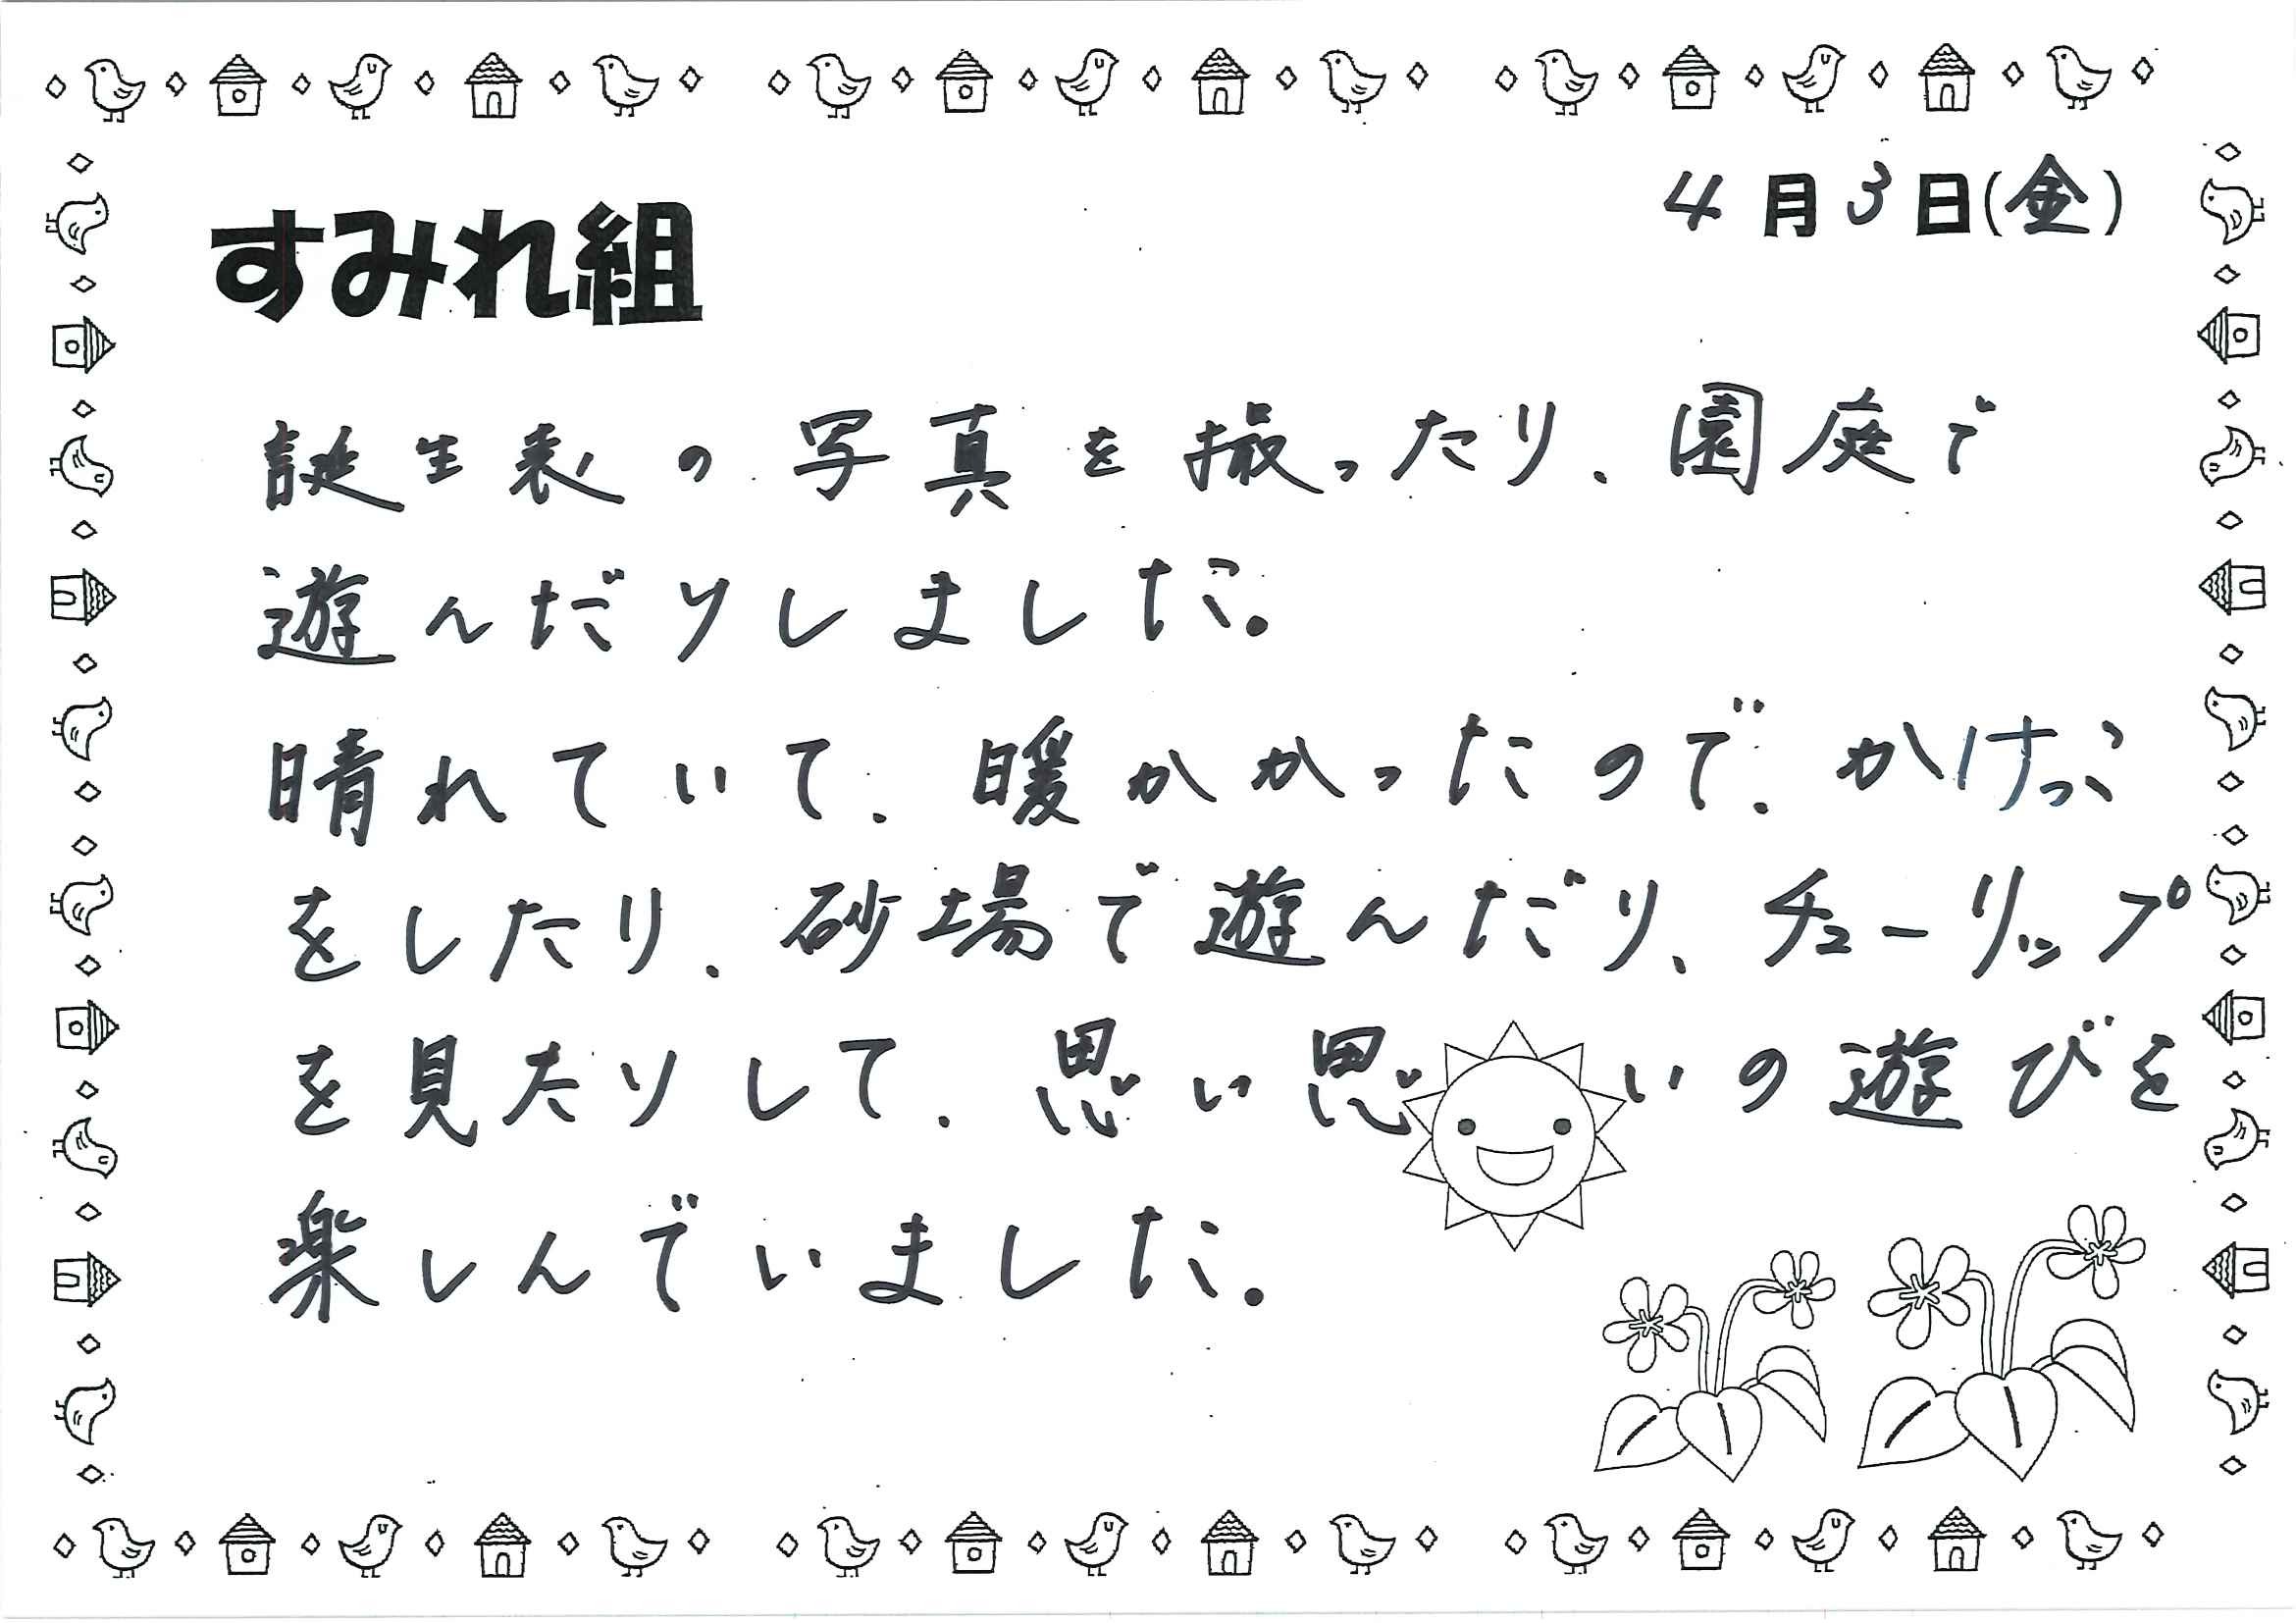 4月3日(金)
すみれ組
誕生表の写真を撮ったり、園庭で
遊んだりしました。
晴れていて、暖かかったので、かけっこ
をしたり、砂場で遊んだり、チューリップ
を見たりして、思い思いの遊びを
楽しんでいました。